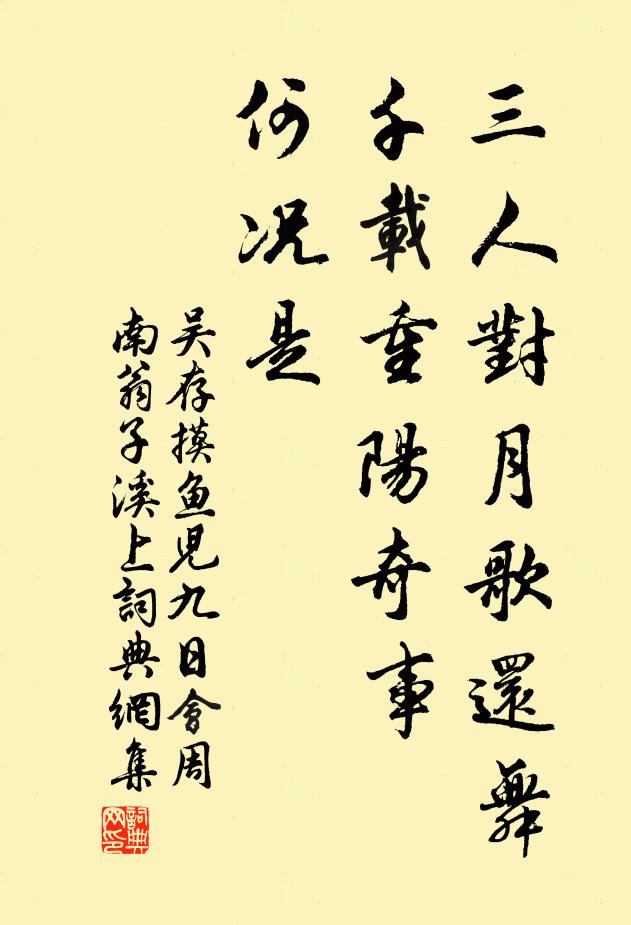 三人對月歌還舞
千載重陽奇事
何况是
吴存摸鱼児九日會周
南翁子溪上詞典網集
詞典网印